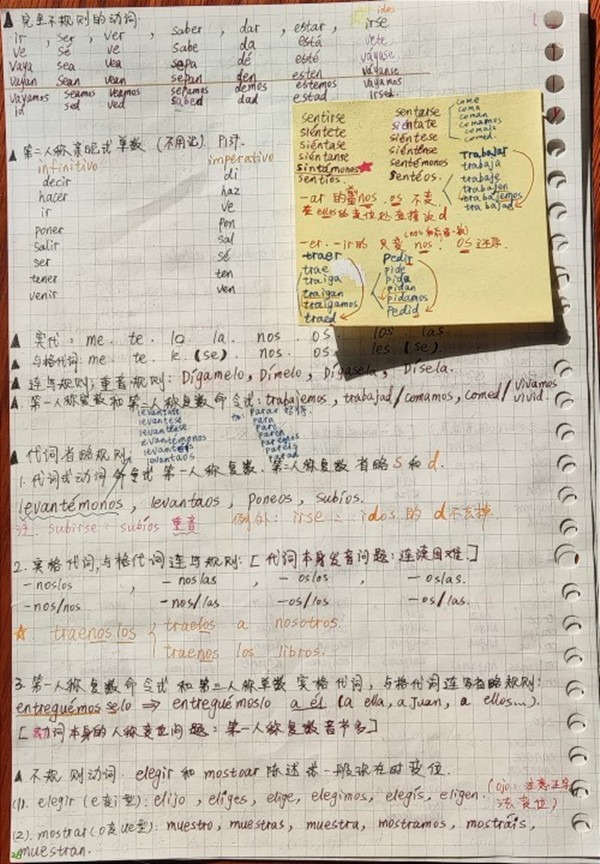 ▲ 完全不规则的动词:
idos
ir , ser , ver , saber , dar , estar , irse
ve sé ve sabe da está vete
vaya sea vea sepa dé esté váyase
vayan sean vean sepan den estén váyanse
vayamos seamos veamos sepamos demos estemos vayamos
id sed ved sabed dad estad irsed
▲ 第二人称亲昵式单数 (不用记). P157.
infinitivo imperativo
decir di
hacer haz
ir ve
poner pon
salir sal
ser sé
tener ten
venir ven
sentirse
siéntete
siéntase
siéntanse
sintámonos ★
sentíos.
sentarse
siéntate
siéntese
siéntense
sentémonos
sentéos.
come
coma
coman
comamos
comais
comed.
Trabajar
trabaja
trabaje
trabajen
trabajemos
trabajad
-ar 的 nos. os 不变.
在ellos的变位处直接改 d
-er. -ir的 只变 nos. os 还原.
traer
trae
traiga
traigan
traigamos
traed
Pedir
pide
pida
pidan
pidamos
Pedid
▲ 宾代: me . te . lo . la . nos . os . los las.
▲ 与格代词: me . te . le (se) . nos . os . les (se).
▲ 连写规则; 重音规则: Dígamelo, Dímelo, Dígasela, Dísela.
▲ 第一人称复数和第二人称复数命令式: trabajemos, trabajad/comamos, comed/vivamos vivid.
levantate
levantese
levantense
levantémonos
levantaos
Parar
para
pare
paren
paremos
pareis
parad
▲ 代词省略规则
1. 代词式动词命令式 第一人称复数. 第二人称复数 省略 s 和 d.
levantémonos , levantaos , poneos , subíos.
注: subirse: subíos 重音 例外: irse: idos 的 d不去掉
2. 宾格代词,与格代词连写规则: [ 代词本身发音问题: 连读困难.]
- noslos , - noslas , - oslos , - oslas.
- nos/nos - nos/las - os/los - os/las.
☆ traenoslos { traelos a nosotros.
traenos los libros.
3. 第一人称复数命令式 和第三人称单数 宾格代词, 与格代词连写省略规则:
entreguémosselo ⇒ entreguémoslo a él (a ella, a Juan, a ellos...).
[ 动词本身的人称变位问题: 第一人称复数音节多]
▲ 不规则动词. elegir 和 mostoar 陈述式一般现在时变位.
(1). elegir (e变i型): elijo , eliges , elige , elegimos , elegís , eligen.
(2). mostrar (o变ue型): muestro , muestras , muestra , mostramos , mostráis ,
muestran.